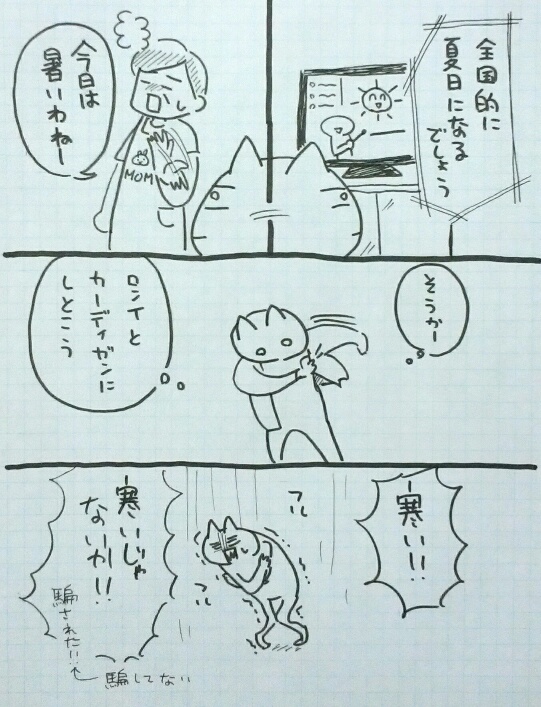 全国的に
夏日になる
でしょう
今日は
暑いわねー
MOM
そうかー
ロンTと
カーディガンに
しとこう
寒い!!
ブル
ブル
寒いじゃ
ないか!!
騙された!!
騙してない